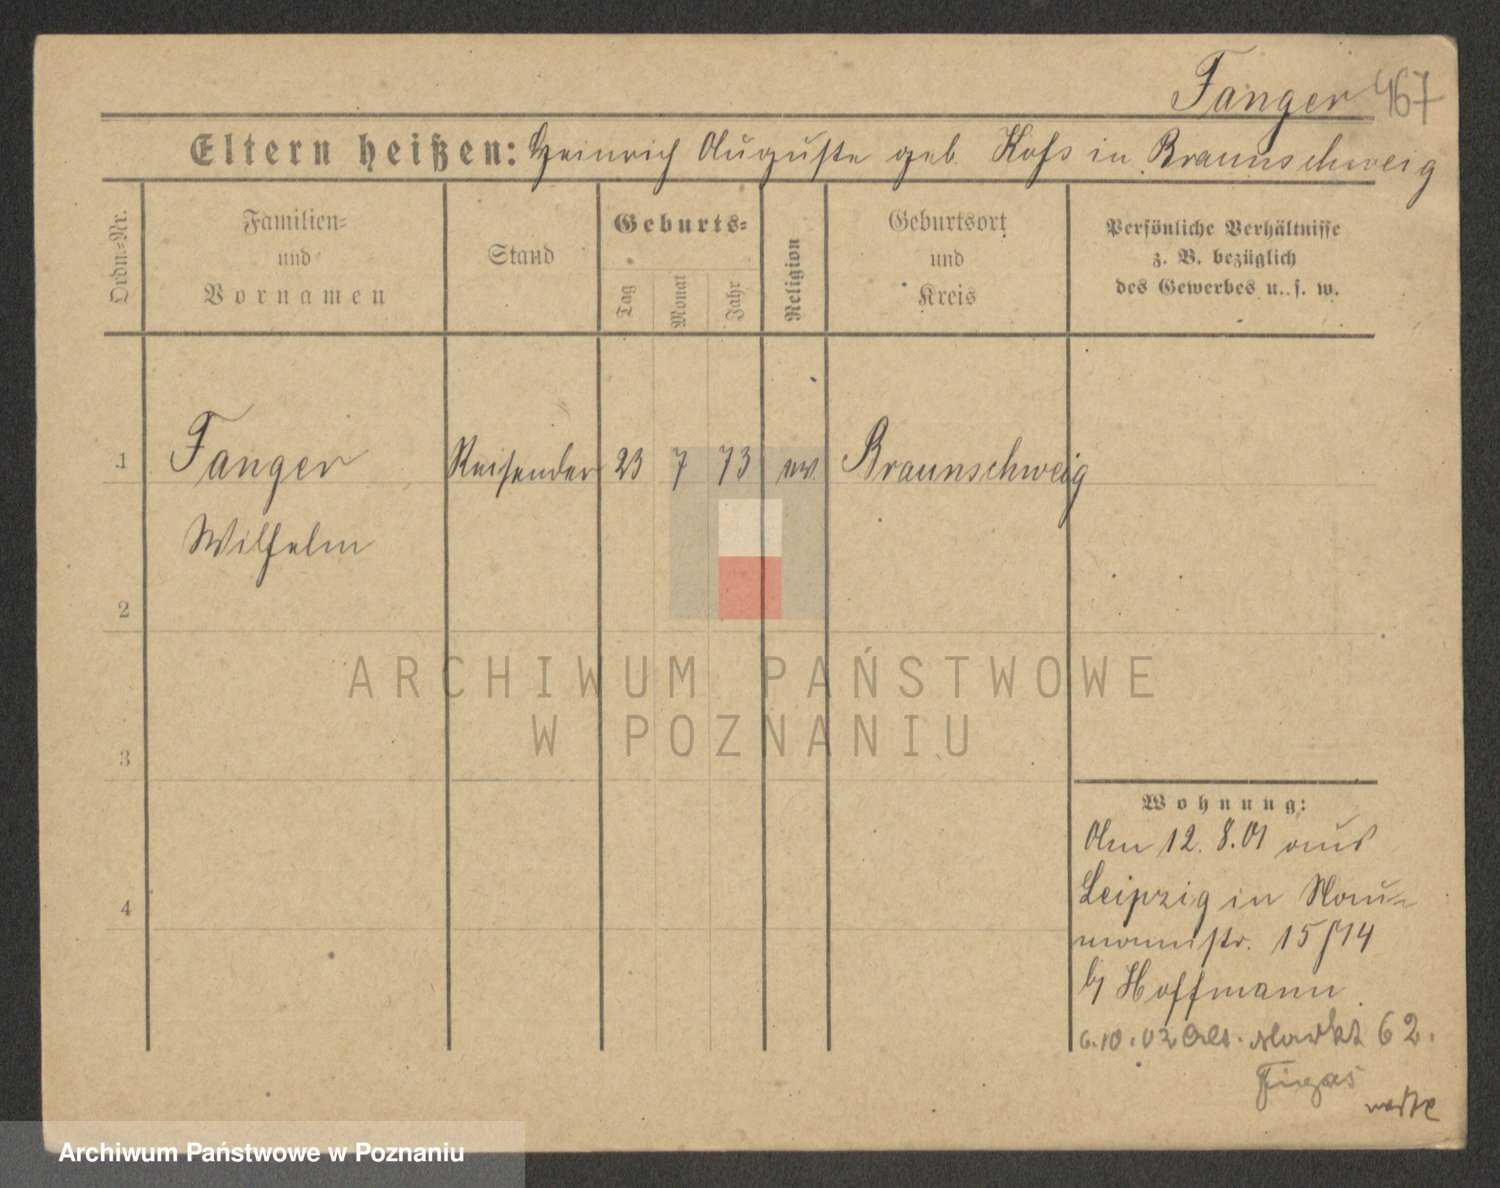 Fanger 467
Eltern heißen: Heinrich Auguste geb. Koss in Braunschweig
Ordn.=Nr.
Familien=
und
Vornamen
Stand
Geburts=
Tag
Monat
Jahr
Religion
Geburtsort
und
Kreis
Persönliche Verhältnisse
z. B. bezüglich
des Gewerbes u. s. w.
1 Fanger Reisender 23 7 73 ev. Braunschweig
Wilhelm
2
3
4
Wohnung:
Am 12. 8. 01 aus
Leipzig in Nau-
mannstr. 15/14
b/ Hoffmann
6.10.02 Alt. Markt 62.
ARCHIWUM PAŃSTWOWE
W POZNANIU
Archiwum Państwowe w Poznaniu